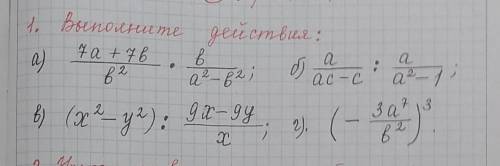 1. Выполните действия:
а) (7a + 7b)/b² · b/(a² - b²); б) a/(ac - c) : a/(a² - 1);
в) (x² - y²) : (9x - 9y)/x; г). (- 3a⁷/b²)³.